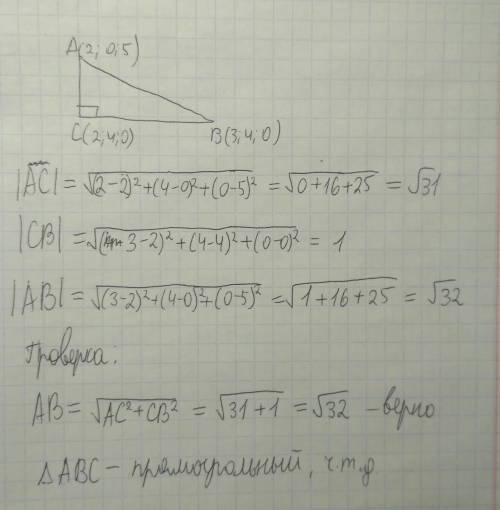 A(2; 0; 5)
C(2; 4; 0) B(3; 4; 0)
|AC| = √(2-2)²+(4-0)²+(0-5)² = √0+16+25 = √31
|CB| = √(3-2)²+(4-4)²+(0-0)² = 1
|AB| = √(3-2)²+(4-0)²+(0-5)² = √1+16+25 = √32
Проверка:
AB = √AC²+CB² = √31+1 = √32 - верно
△ABC - прямоугольный, ч.т.д